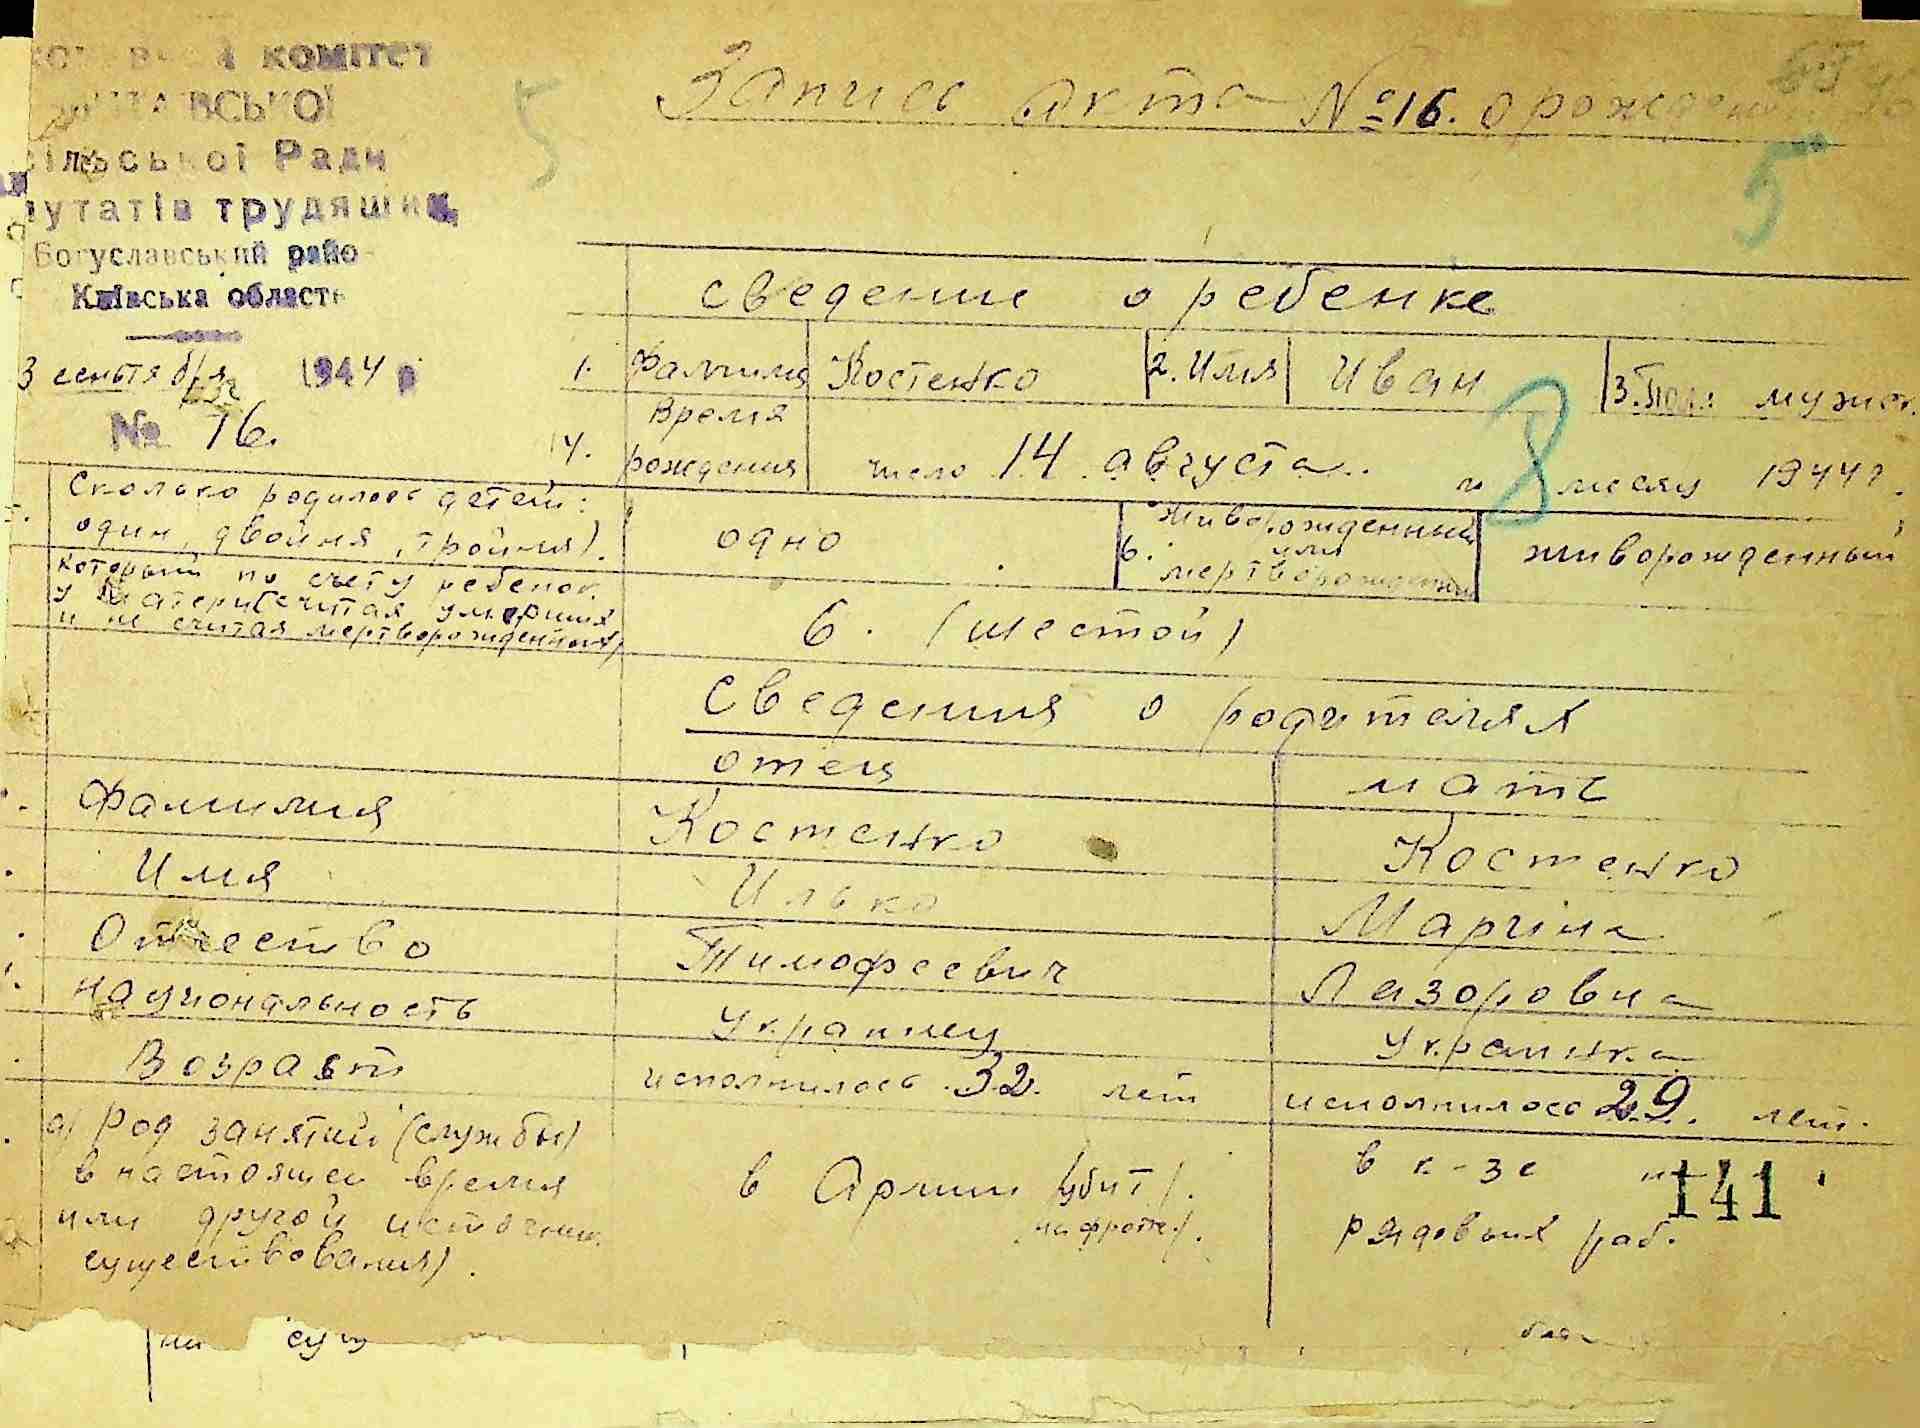 комітет
ВСЬКОЇ
сільської Ради
путатів трудящих
Богуславський райо
Київська област
3 сентября 1944 р
№ 16.
5
Запись акта № 16. о рожден
5
сведение о ребенке
1. Фамилия Костенко 2. Имя Иван 3. Пол: мужск.
14. Время рождения число 14 августа.. 8 месяц 1944 г.
Сколько родилось детей:
один, двойня, тройня).
одно
6. Живорожденный
или
мертворожденный
живорожденный
который по счету ребенок
у матери (считая умерших
и не считая мертворожденных)
6. (шестой)
сведения о родителях
отец мать
Фамилия Костенко Костенко
Имя Илько
Отчество Тимофеевич Лазоровна
национальность Украинец Украинка
Возраст исполнилось 32. лет исполнилось 29. лет.
а) Род занятий (службы)
в настоящее время
или другой источник
существования).
в Армии (убит).
на фронте).
в к-зе
141
рядовых раб.
сущ